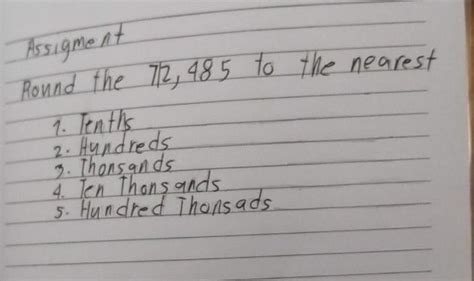 Assigment
Round the 712,485 to the nearest
1. Tenths
2. Hundreds
3. Thonsands
4. Ten Thonsands
5. Hundred Thonsads